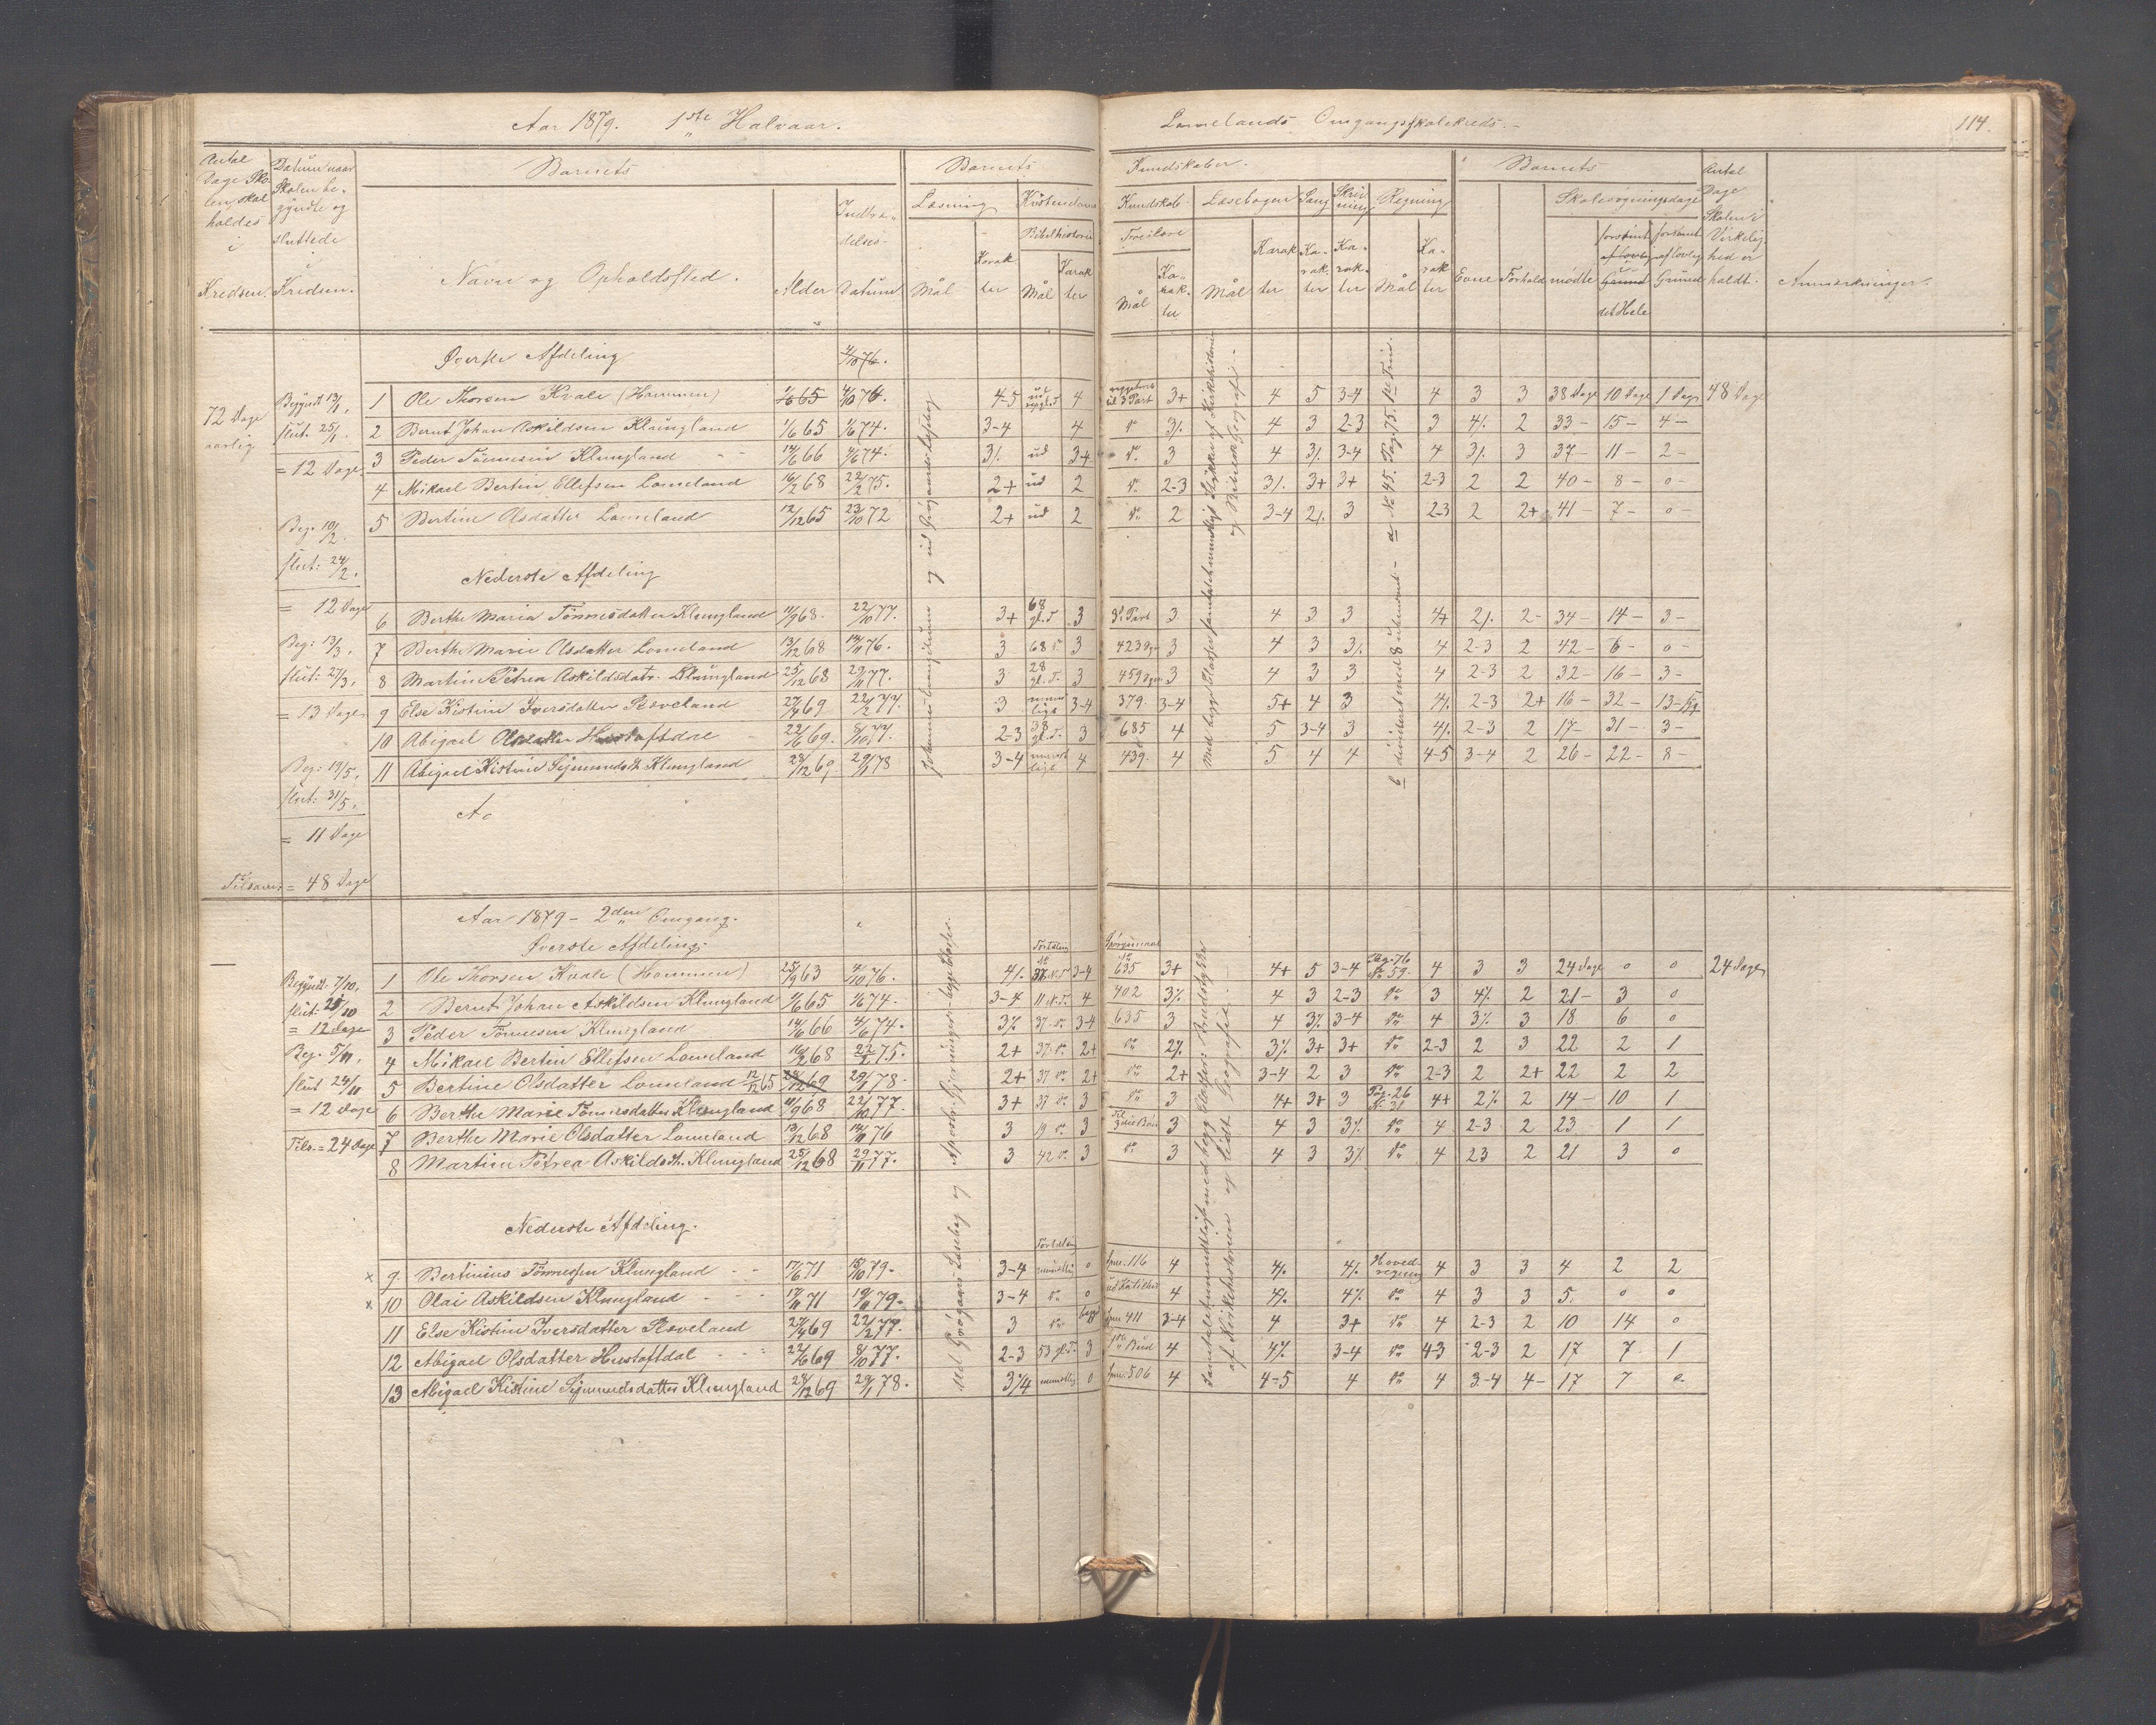 Aar 1879. 1ste Halvaar.
Lomelands Omgangsskolekreds.-
114.
Antal Dage Skolen skal holdes i Kredsen.
Datum naar Skolen begyndte og sluttede i Kredsen.
Barnets
Navn og Opholdssted.
Alder
Indtrædelses-Datum
Barnets
Kundskaber.
Læsning
Mål
Karakter
Kristendoms
Kundskab
Bibelhistorie
Mål
Karakter
Troeslære
Mål
Karakter
Læsebogen
Mål
Karakter
Sang
Karakter
Skrivning
Karakter
Regning
Mål
Karakter
Barnets
Evne
Forhold
Skolesøgningsdage
mødte
forsømt
af lovlig
Grund
det Hele
forsømt
af lovlig
Grund
Antal Dage Skolen i Virkelighed er holdt.
Anmærkninger.
Øverste Afdeling
4/10 76.
72 Dage aarlig
Begyndt 13/1,
slut. 25/1.
= 12 Dage
1 Ole Thorsen Kvale (Hammen) 1/6 65 4/10 76. 4-5 4 3+ 4 5 3-4 4 3 3 38 Dage 10 Dage 1 Dag 48 Dage
2 Bernt Johan Askildsen Klungland 1/6 65 1/6 74. 3-4 4 do 3/. 4 3 2-3 3 4/. 2 33 - 15 - 4 -
3 Peder Tönnesen Klungland 14/6 66 4/6 74. 3/. ud 3-4 do 3 4 3/. 3-4 4 3/. 3 37- 11 - 2 -
4 Mikael Bertin Ellefsen Lomeland 16/2 68 22/2 75. 2+ ud 2 do 2-3 3/. 3+ 3+ 2-3 2 2 40 - 8 - 0 -
5 Bertine Olsdatter Lomeland 12/12 65 23/10 72 2+ ud 2 do 2 3-4 2/. 3 2-3 2 2+ 41 - 7 - 0 -
Beg. 10/2.
slut: 24/2.
= 12 Dage
Nederste Afdeling
6 Berthe Maria Tönnesdatter Klungland 11/9 68. 22/10 77. 3+ 68 gl. T. 3 3d Part 3 4 3 3 4+ 2/. 2- 34 - 14 - 3 -
Beg: 13/3,
slut: 27/3,
= 13 Dage
7 Berthe Marie Olsdatter Lomeland 13/12 68 14/11 76. 3 68 do 3 423 3 4 3 3/. 4 2-3 2 42 - 6 - 0 -
8 Martin Petrea Askildsdatr. Klungland 25/12 68 29/11 77. 3 28 gl. T. 3 459 3 4 3 3 4 2-3 2 32 - 16 - 3 -
9 Else Kistine Iversdatter Røsveland 27/4 69 22/2 77. 3 mundligt 3-4 379. 3-4 5+ 4 3 4/. 2-3 2+ 16 - 32 - 13 -
10 Abigael Olsdatter Hustoftdal 22/6 69. 8/10 77. 2-3 38 gl. T. 3 685 4 5 3-4 3 4/. 2-3 2 17- 31 - 3 -
11 Abigael Kistine Sigmundsdt. Klungland 28/12 69 29/1 78 3-4 mundtligt 4 439. 4 5 4 4 4-5 3-4 2 26 - 22 - 8 -
Beg: 19/5,
slut: 31/5,
= 11 Dage
Tilsam: = 48 Dage
Aa
Aar 1879 - 2den Omgang.
Øverste Afdeling.
Fortælling
Spörgsmaal
Begyndt. 7/10,
slut: 20/10
= 12 Dage
1 Ole Thorsen Kvale (Hammen) 25/9 63 4/10 76. 4/. 37. N. T. 3-4 635 3+ 4+ 5 3-4 Pag. 76 No 59. 4 3 3 24 Dage 0 0 24 Dage
2 Bernt Johan Askildsen Klungland 9/6 65 1/6 74. 3-4 11 N. T. 4 402 3/. 4 3 2-3 do 3 4/. 2 21 - 3 0
3 Peder Tönnesen Klungland 14/6 66 4/6 74. 3/. 37. do 3-4 635 3 4 3/. 3-4 do 4 3/. 3 18 6 0
Beg. 5/11,
slut 24/11
= 12 Dage
4 Mikael Bertin Ellefsen Lomeland 16/2 68 22/2 75. 2+ 37. do 2+ do 2/. 3/. 3+ 3+ do 2-3 2 3 22 2 1
5 Bertine Olsdatter Lomeland 12/12 65 29/1 78. 2+ 37 do 2+ do 2+ 3-4 2 3 do 2-3 2 2+ 22 2 2
6 Berthe Marie Tönnesdatter Klungland 11/9 68 22/10 77. 3+ 37 do 3 do 3 4+ 3+ 3 Pag. 26 No 31 4+ 2/. 2 14 - 10 1
Tils. = 24 Dage
7 Berthe Marie Olsdatter Lomeland 13/12 68 14/11 76 3 19 do 3 Til 3die Bön 3 4 3 3/. do 4 2-3 2 23 1 1
8 Martin Petrea Askildsdt. Klungland 25/12 68 29/11 77. 3 42 do 3 do 3 4 3 3/. do 4 23 2 21 3 0
Nederste Afdeling.
Fortælling
x 9. Bertinius Tönnessen Klungland 17/6 71 15/10 79. 3-4 mundtlig 0 Spm. 116 4 4/. 4/. Hovedregning 4 3 3 4 2 2
x 10 Olai Askildsen Klungland 17/11 71 19/11 79. 3-4 do 0 4 4/. 4/. do 4 3 3 5. 0 0
11 Else Kistine Iversdatter Røsveland 27/4 69 22/2 77. 3 do Spm 411 3-4 4 3+ do 4 2-3 2 10 14 0
12 Abigael Olsdatter Hustoftdal 22/6 69 8/10 77. 2-3 53 gl. T. 3 Bud 4 4/. 3-4 do 4-3 2-3 2 17 7 1
13 Abigael Kistine Sigmundsdatter Klungland 28/12 69 29/1 78. 3/4 mundtlig 0 Spm. 506 4 4-5 4 do 4 3-4 4- 17 7 0-